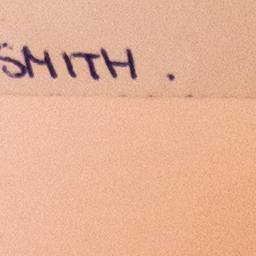 SMITH .